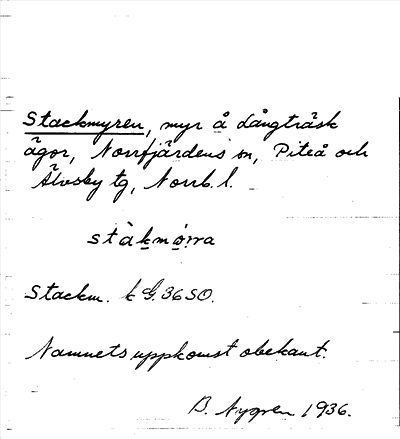 Stackmyren, myr å Långträsk
ägor, Norrfjärdens sn, Piteå och
Älvsby tg, Norrb. l.
stàkmørra
Stackm. k G. 36 SO.
Namnets uppkomst obekant.
B. Nygren 1936.